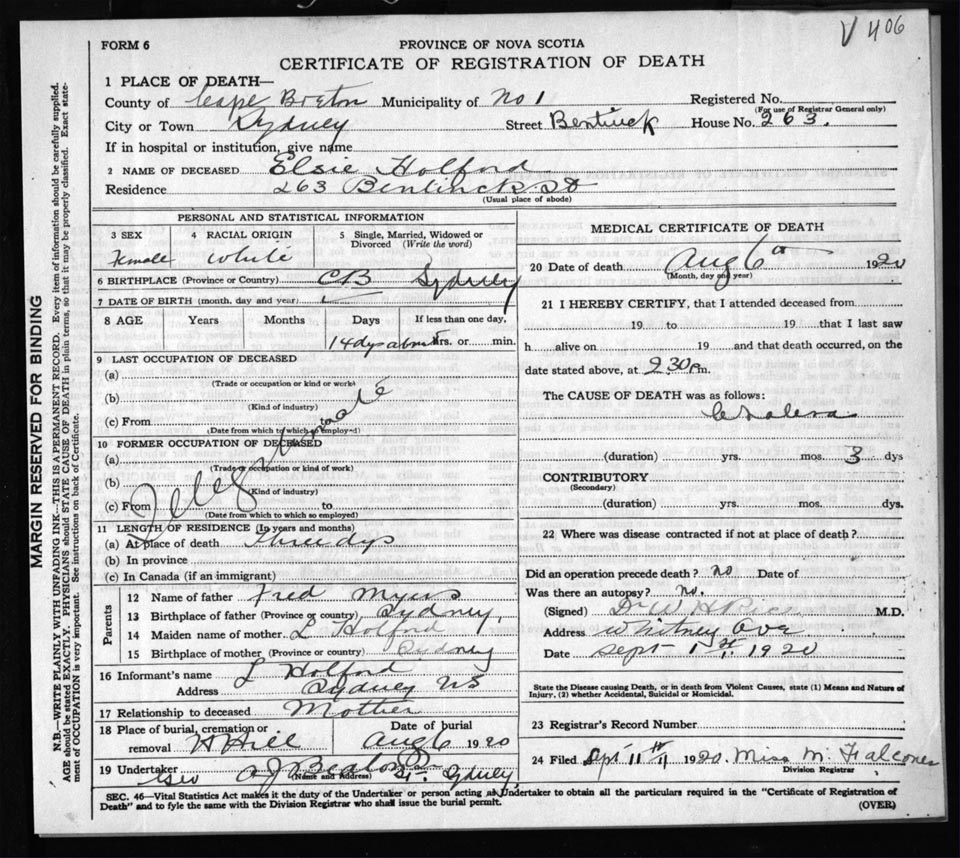 V 406
FORM 6
PROVINCE OF NOVA SCOTIA
CERTIFICATE OF REGISTRATION OF DEATH
1 PLACE OF DEATH—
County of Cape Breton Municipality of No 1 Registered No.
(For use of Registrar General only)
City or Town Sydney Street Bentinck House No. 263.
If in hospital or institution, give name
2 NAME OF DECEASED Elsie Holford
Residence 263 Bentinck St
(Usual place of abode)
PERSONAL AND STATISTICAL INFORMATION
3 SEX
Female
4 RACIAL ORIGIN
White
5 Single, Married, Widowed or Divorced (Write the word)
6 BIRTHPLACE (Province or Country) CB Sydney
7 DATE OF BIRTH (month, day and year)
8 AGE Years Months Days If less than one day,
14 dys about hrs. or min.
9 LAST OCCUPATION OF DECEASED
(a)
(Trade or occupation or kind or work)
(b)
(Kind of industry)
(c) From
(Date from which to which so employed)
10 FORMER OCCUPATION OF DECEASED
(a)
(Trade or occupation or kind of work)
(b)
(Kind of industry)
(c) From to
(Date from which to which so employed)
11 LENGTH OF RESIDENCE (In years and months)
(a) At place of death three dys
(b) In province
(c) In Canada (if an immigrant)
Parents
12 Name of father Fred Myers
13 Birthplace of father (Province or country) Sydney
14 Maiden name of mother L Holford
15 Birthplace of mother (Province or country) Sydney
16 Informant's name L Holford
Address Sydney NS
17 Relationship to deceased Mother
18 Place of burial, cremation or removal H Hill
Date of burial
Aug 6 1920
19 Undertaker A J Beaton St. Sydney
(Name and Address)
MEDICAL CERTIFICATE OF DEATH
20 Date of death Aug 6th 1920
(Month, day and year)
21 I HEREBY CERTIFY, that I attended deceased from
19 to 19 that I last saw
h alive on 19 and that death occurred, on the
date stated above, at 2 30 p.m.
The CAUSE OF DEATH was as follows:
Cholera
(duration) yrs. mos. 3 dys
CONTRIBUTORY
(Secondary)
(duration) yrs. mos. dys.
22 Where was disease contracted if not at place of death?
Did an operation precede death? no Date of
Was there an autopsy? no.
(Signed) Dr W H M.D.
Address Whitney Ave
Date Sept 1st 1920
State the Disease causing Death, or in death from Violent Causes, state (1) Means and Nature of
Injury, (2) whether Accidental, Suicidal or Homicidal.
23 Registrar's Record Number
24 Filed Sept 11th 1920. Miss M. Falconer
Division Registrar
SEC. 46—Vital Statistics Act makes it the duty of the Undertaker or person acting as Undertaker to obtain all the particulars required in the "Certificate of Registration of
Death" and to fyle the same with the Division Registrar who shall issue the burial permit.
(OVER)
MARGIN RESERVED FOR BINDING
N.B.—WRITE PLAINLY WITH UNFADING INK—THIS IS A PERMANENT RECORD. Every item of information should be carefully supplied.
AGE should be stated EXACTLY. PHYSICIANS should STATE CAUSE OF DEATH in plain terms, so that it may be properly classified. Exact statement of OCCUPATION is very important. See instructions on back of Certificate.